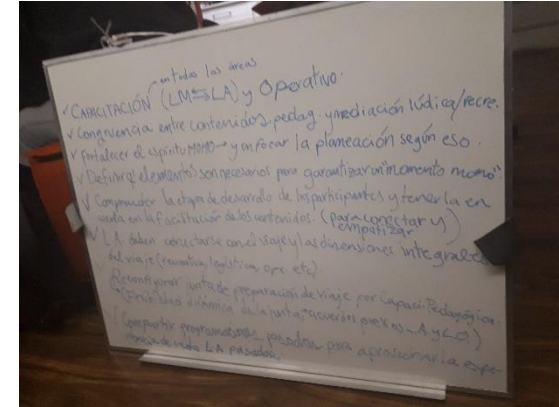 en todas las áreas
✓ CAPACITACIÓN (LM⇆LA) y Operativo.
✓ Congruencia entre contenidos, pedag. y mediación lúdica/recre.
✓ Fortalecer el espíritu MOMO → y enfocar la planeación según eso.
✓ Definir q' elementos son necesarios para garantizar un "momento momo"
✓ Comprender la etapa de desarrollo de los participantes y tenerla en
cuenta en la facilitación de los contenidos. (para conectar y
empatizar
✓ L.A. deben conectarse con el viaje y las dimensiones integrales
del viaje (logística, ope. etc)
Reconfigurar junta de preparación de viaje por capaci. Pedagógica.
dinámica de la junta, acuerdos previos
Compartir pasados para aprovechar la expe-
riencia de cada L.A pasados.